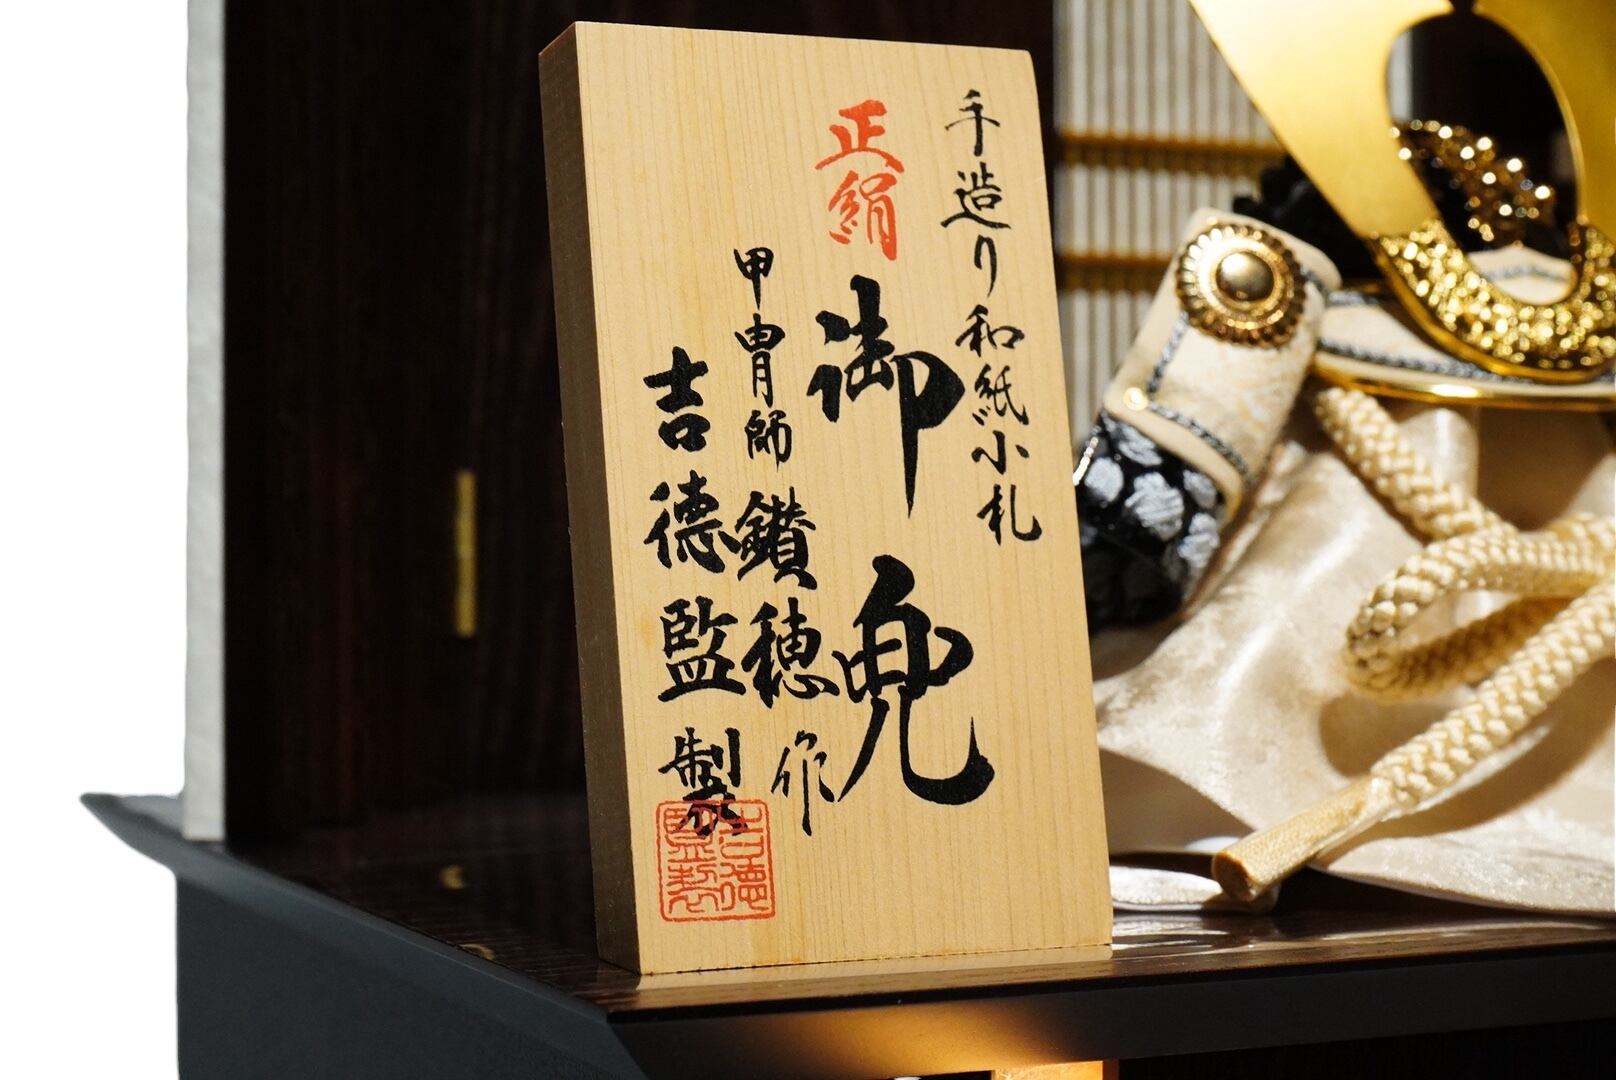 手造り和紙小札
正絹
御兜
甲冑師 鑚穂 作
吉德監製
吉德監製